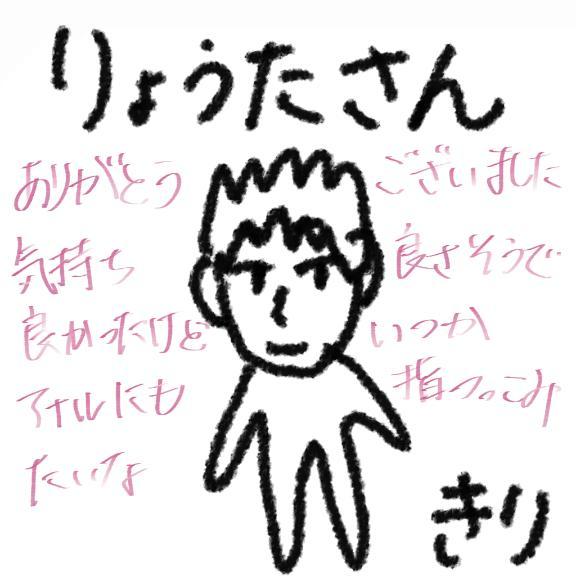 りょうたさん
ありがとう
ございました
気持ち
良さそうで
良かったけど
いつか
アナルにも
指つっこみ
たいなょ
きり